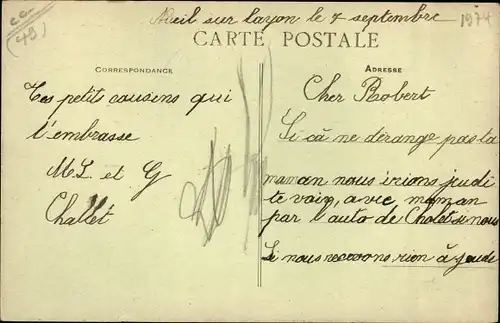 Nueil sur layon le 7 septembre 1924
CARTE POSTALE
CORRESPONDANCE
ADRESSE
(49)
Tes petits cousins qui
t'embrasse
ML et G
Challet
Cher Robert
Si cà ne dérange pas ta
maman nous irions jeudi
te voir, avec maman
par l'auto de Cholet si nous
Si nous recevons rien à jeudi